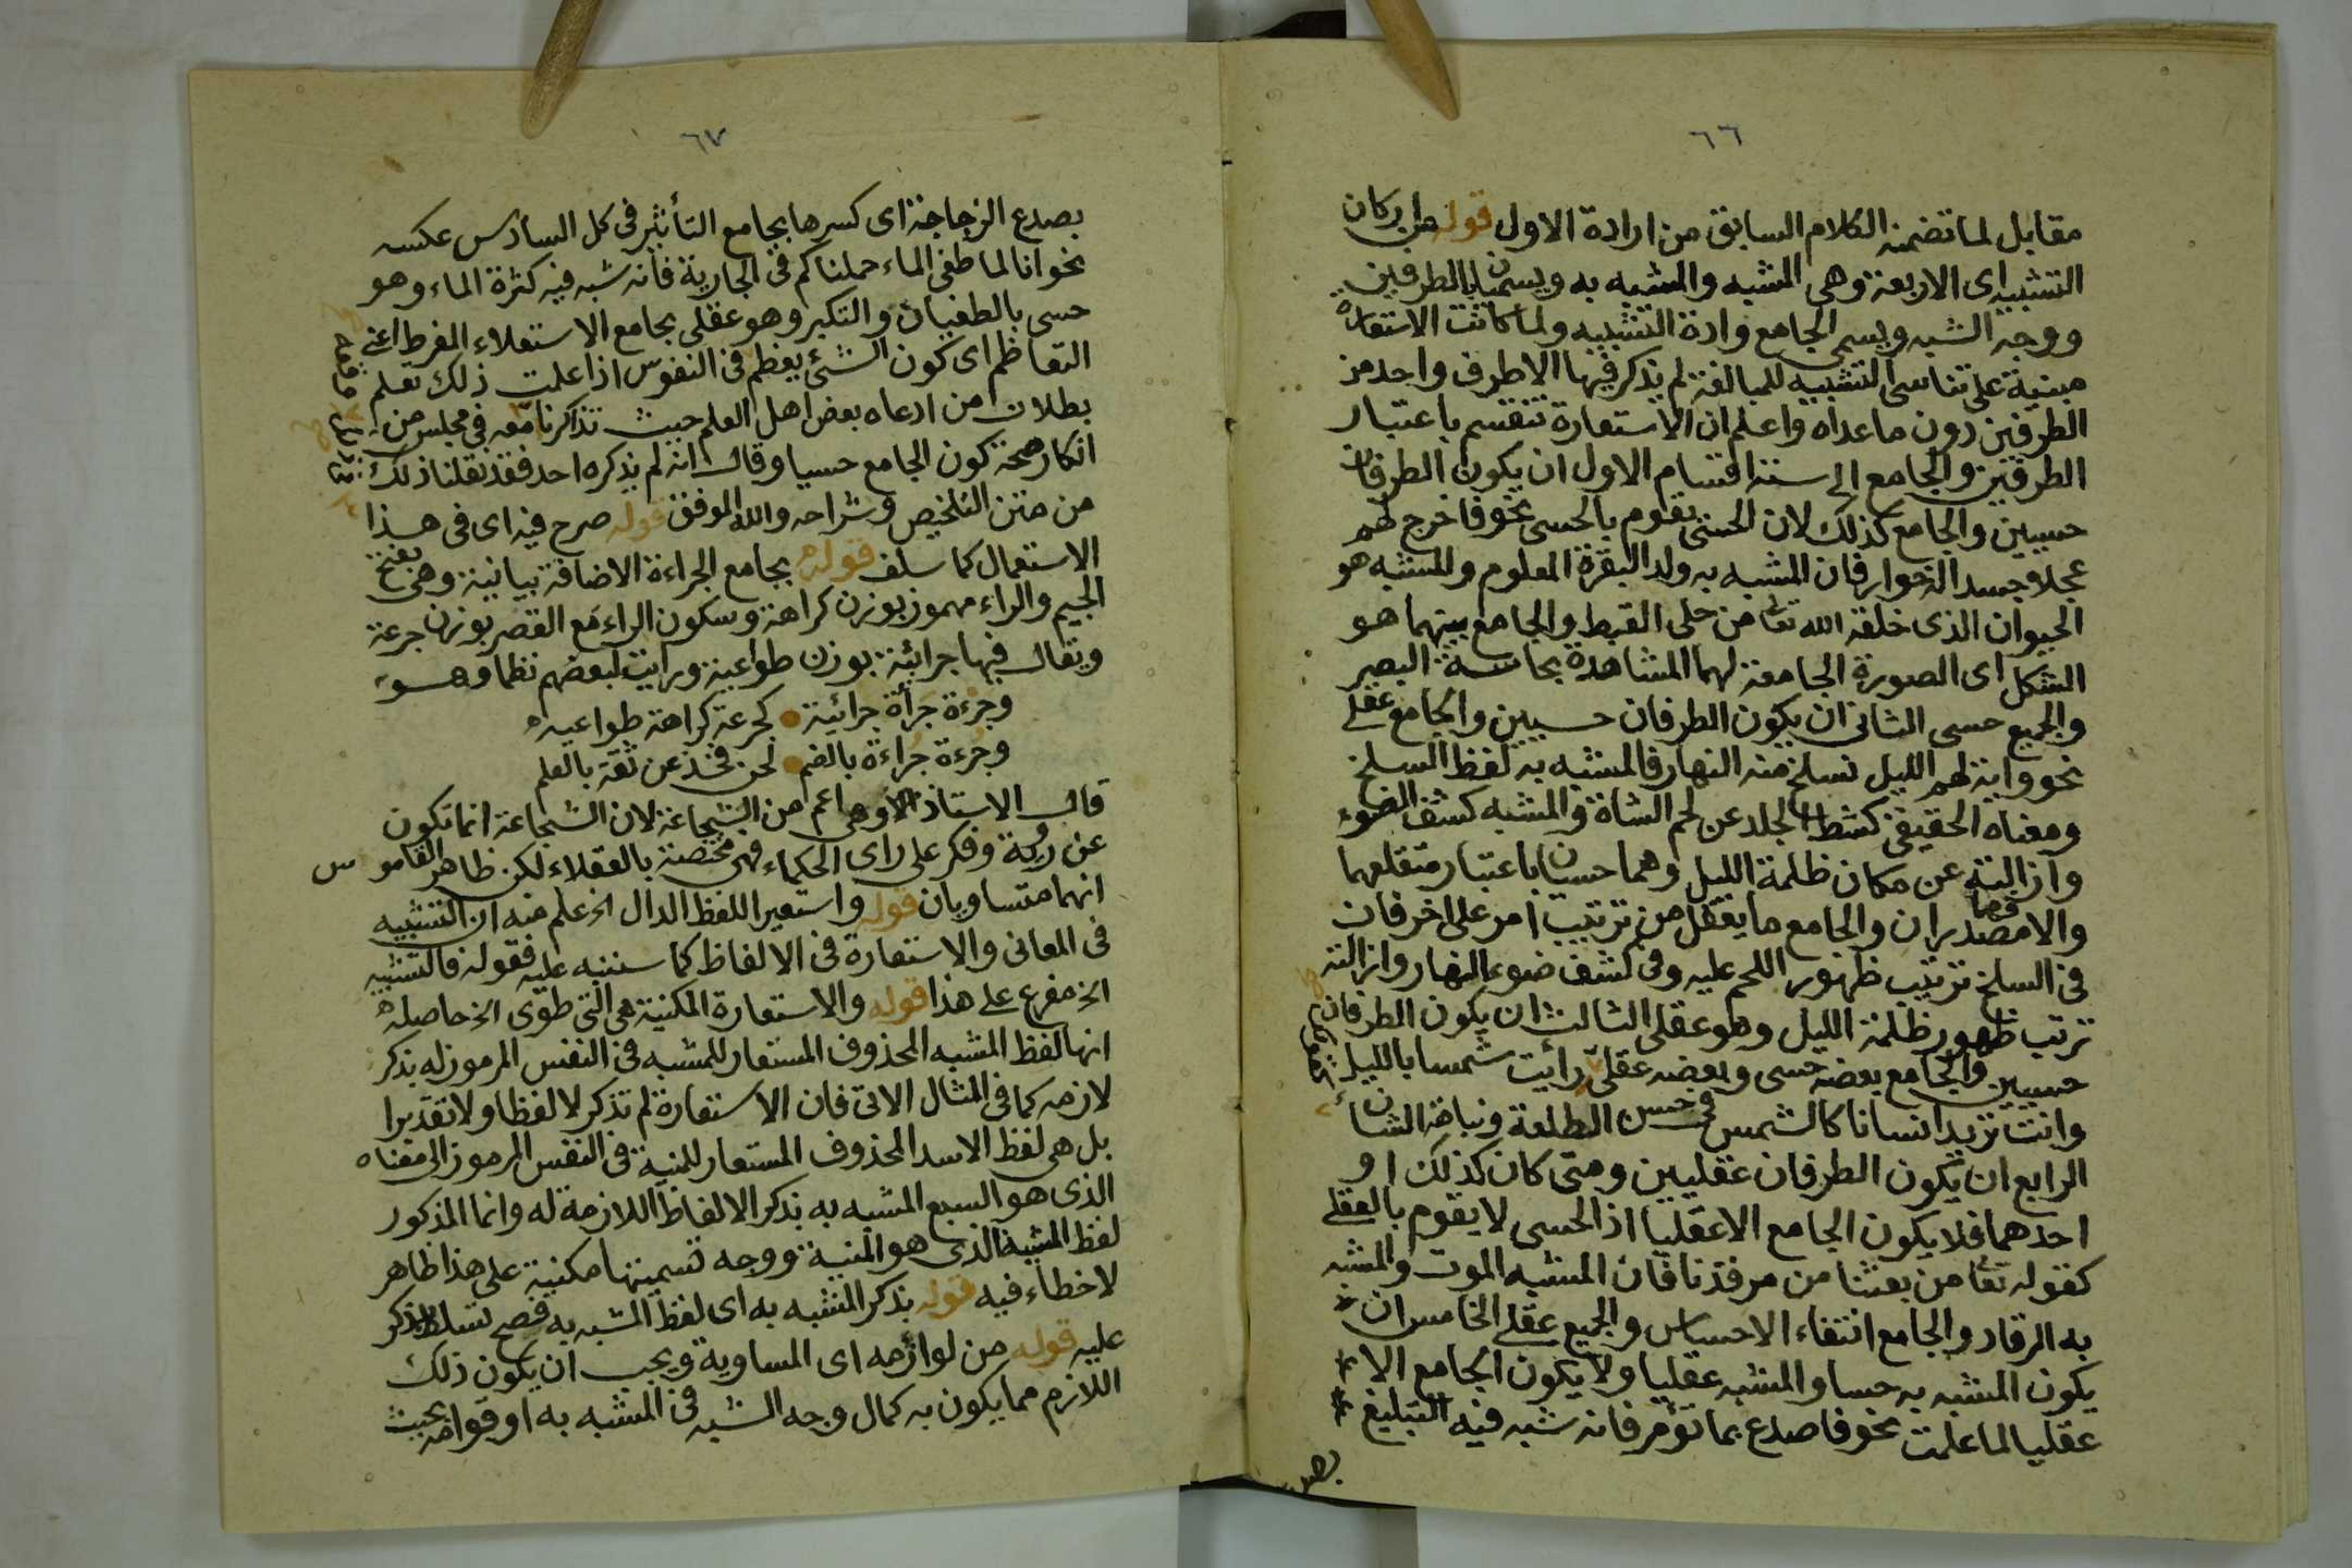 ٦٦
مقابل لما تضمنه الكلام السابق من ارادة الاول قوله من اركان
التشبيه اى الاربعة وهى المشبه والمشبه به ويسميان بالطرفين
ووجه الشبه ويسمى الجامع وادة التشبيه ولما كانت الاستعارة
مبنية على تناسى التشبيه للمبالغة لم يذكر فيها الا طرف واحد من
الطرفين دون ما عداه واعلم ان الاستعارة تنقسم باعتبار
الطرفين والجامع الى ستة اقسام الاول ان يكون الطرفان
حسيين والجامع كذلك لان الحسى يقوم بالحسى نحو فاخرج لهم
عجلا جسدا له خوار فان المشبه به ولد البقرة المعلوم والمشبه هو
الحيوان الذى خلقه الله تعا من حلى القبط والجامع بينهما هو
الشكل اى الصورة الجامعة لهما المشاهدة بحاسة البصر
والجميع حسى الثانى ان يكون الطرفان حسيين والجامع عقلى
نحو واية لهم الليل نسلخ منه النهار فالمشبه به لفظ السلخ
ومعناه الحقيقى كشط الجلد عن لحم الشاة والمشبه كشف الضوء
وازالته عن مكان ظلمة الليل وهما حسيان باعتبار متقلعهما
والا فهما مصدران والجامع ما يعقل من ترتيب امر على اخر فان
فى السلخ ترتيب ظهور اللحم عليه وفى كشف ضوء النهار وازالته
ترتب ظهور ظلمة الليل وهو عقلى الثالث ان يكون الطرفان
حسيين والجامع بعضه حسى وبعضه عقلى رأيت شمسا بالليل
وانت تريد انسانا كالشمس فى حسن الطلعة ونباهة الشان
الرابع ان يكون الطرفان عقليين ومتى كان كذلك او
احدهما فلا يكون الجامع الا عقليا اذ الحسى لا يقوم بالعقلى
كقوله تعا من بعثنا من مرقدنا فان المشبه الموت والمشبه
به الرقاد والجامع انتفاء الاحساس والجميع عقلى الخامس ان
يكون المشبه به حسيا والمشبه عقليا ولا يكون الجامع الا
عقليا لما علمت نحو فاصدع بما تؤمر فانه شبه فيه التبليغ
بصدع
٦٧
بصدع الزجاجة اى كسرها بجامع التأثير فى كل السادس عكسه
نحو انا لما طغى الماء حملناكم فى الجارية فانه شبه فيه كثرة الماء وهو
حسى بالطغيان والتكبر وهو عقلى بجامع الاستعلاء المفرط اعنى
التعاظم اى كون الشئ يعظم فى النفوس اذا علمت ذلك تعلم
بطلان من ادعاه بعض اهل العلم حيث تذاكرنا معه فى مجلس من
انكار صحة كون الجامع حسيا وقال انه لم يذكره احد فقد نقلنا ذلك
من متن التلخيص وشراحه والله الموفق قوله صرح فيه اى فى هذا
الاستعمال كما سلف قوله بجامع الجراءة الاضافة بيانية وهى بفتح
الجيم والراء مهموز بوزن كراهة وسكون الراء مع القصر بوزن جرعة
ويقال فيها جرائية بوزن طواعية ورايت لبعضهم نظما وهو
وجرءة جرأة جرائية كجرعة كراهة طواعيه
وجرءة جراءة بالضم لحن فخذ عن ثقة بالعلم
قال الاستاذ الاوهى اعم من الشجاعة لان الشجاعة انما تكون
عن روية وفكر على راى الحكماء فهى مختصة بالعقلاء لكن ظاهر القاموس
انهما متساويان قوله واستعير اللفظ الدال الخ علم منه ان التشبيه
فى المعانى والاستعارة فى الالفاظ كما سننبه عليه فقوله فالتشبيه
الخ مفرع على هذا قوله والاستعارة المكنية هى التى طوى الخ حاصله
انها لفظ المشبه المحذوف المستعار للمشبه فى النفس المرموز له بذكر
لازمه كما فى المثال الاتى فان الاستعارة لم تذكر لا لفظا ولا تقديرا
بل هى لفظ الاسد المحذوف المستعار للمنية فى النفس المرموز الى معناه
الذى هو السبع المشبه به بذكر الالفاظ اللازمة له وانما المذكور
لفظ المشبه الذى هو المنية ووجه تسميتها مكنية على هذا ظاهر
لا خطاء فيه قوله بذكر المشبه به اى لفظ المشبه به فصح تسلط الذكر
عليه قوله من لوازمه اى المساوية ويجب ان يكون ذلك
اللازم مما يكون به كمال وجه الشبه فى المشبه به او قوامه بحيث